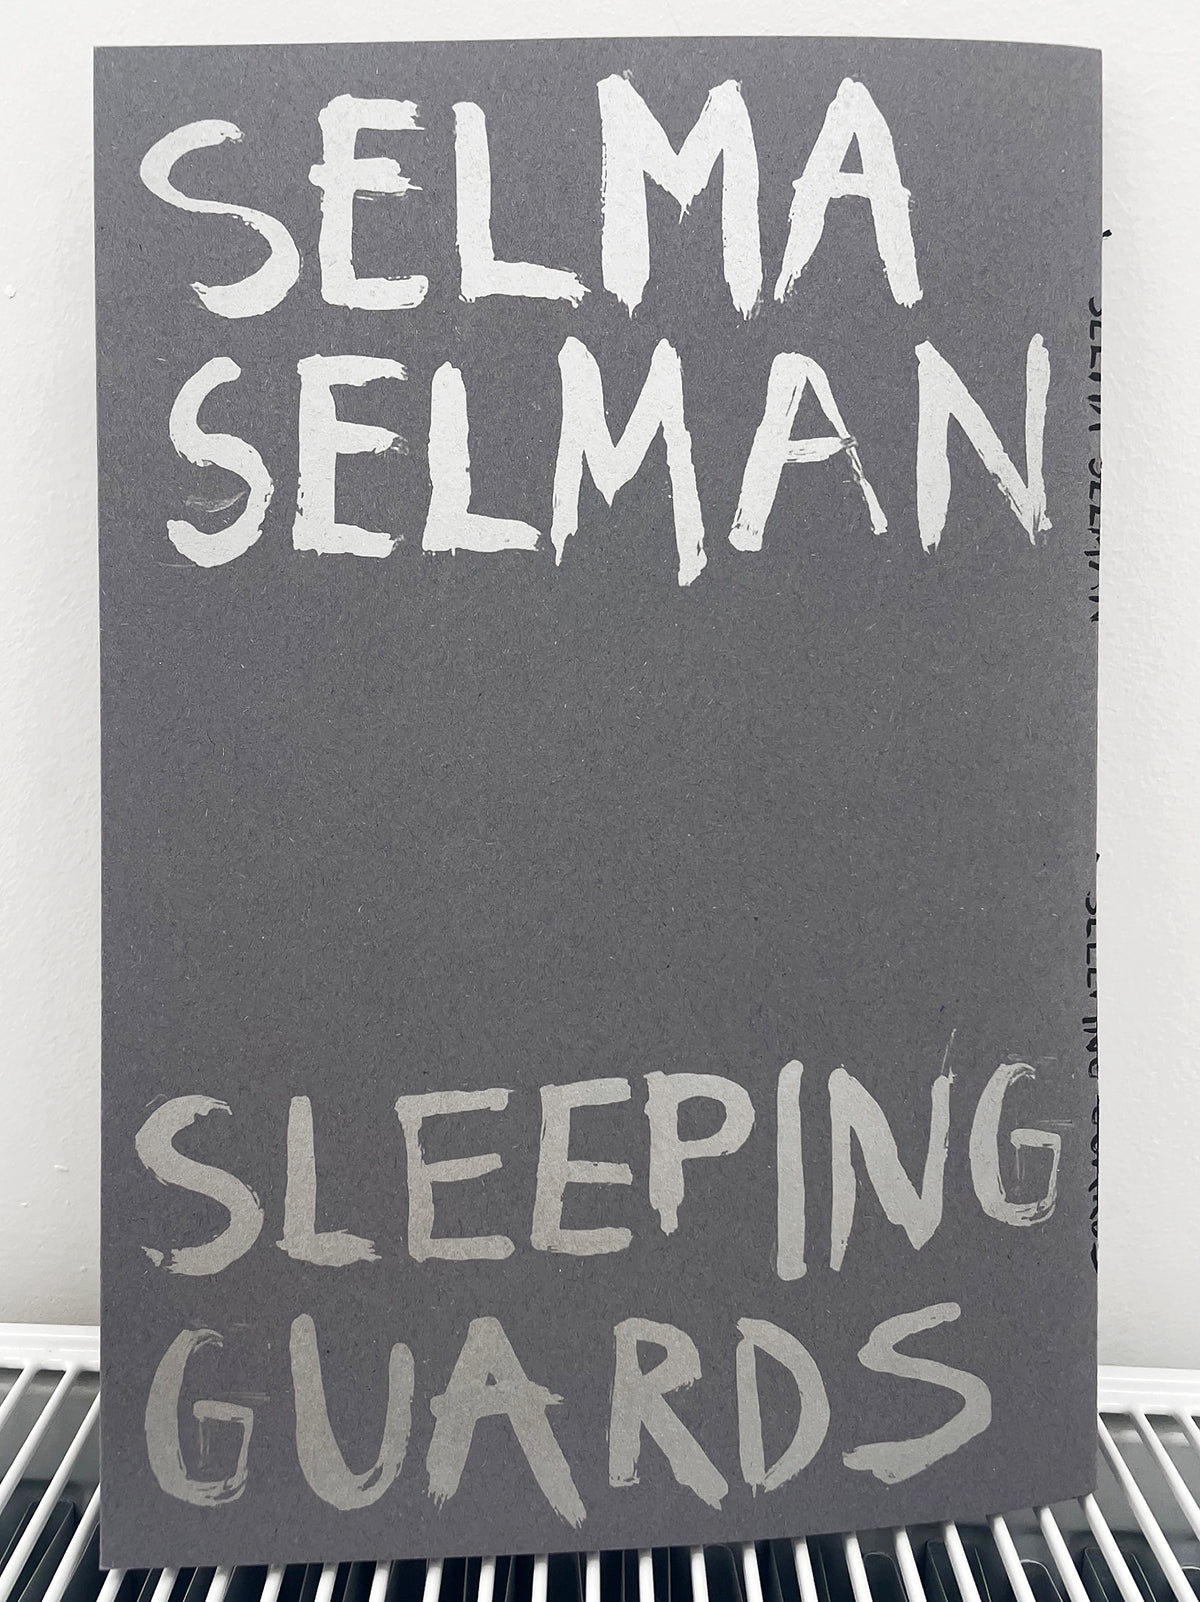 SELMA
SELMAN
SLEEPING
GUARDS
SELMA SELMAN
SLEEPING GUARDS